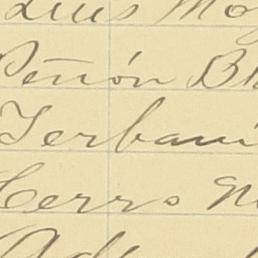 Luis Mo
Peñón Bl
Yerbani
Cerro N